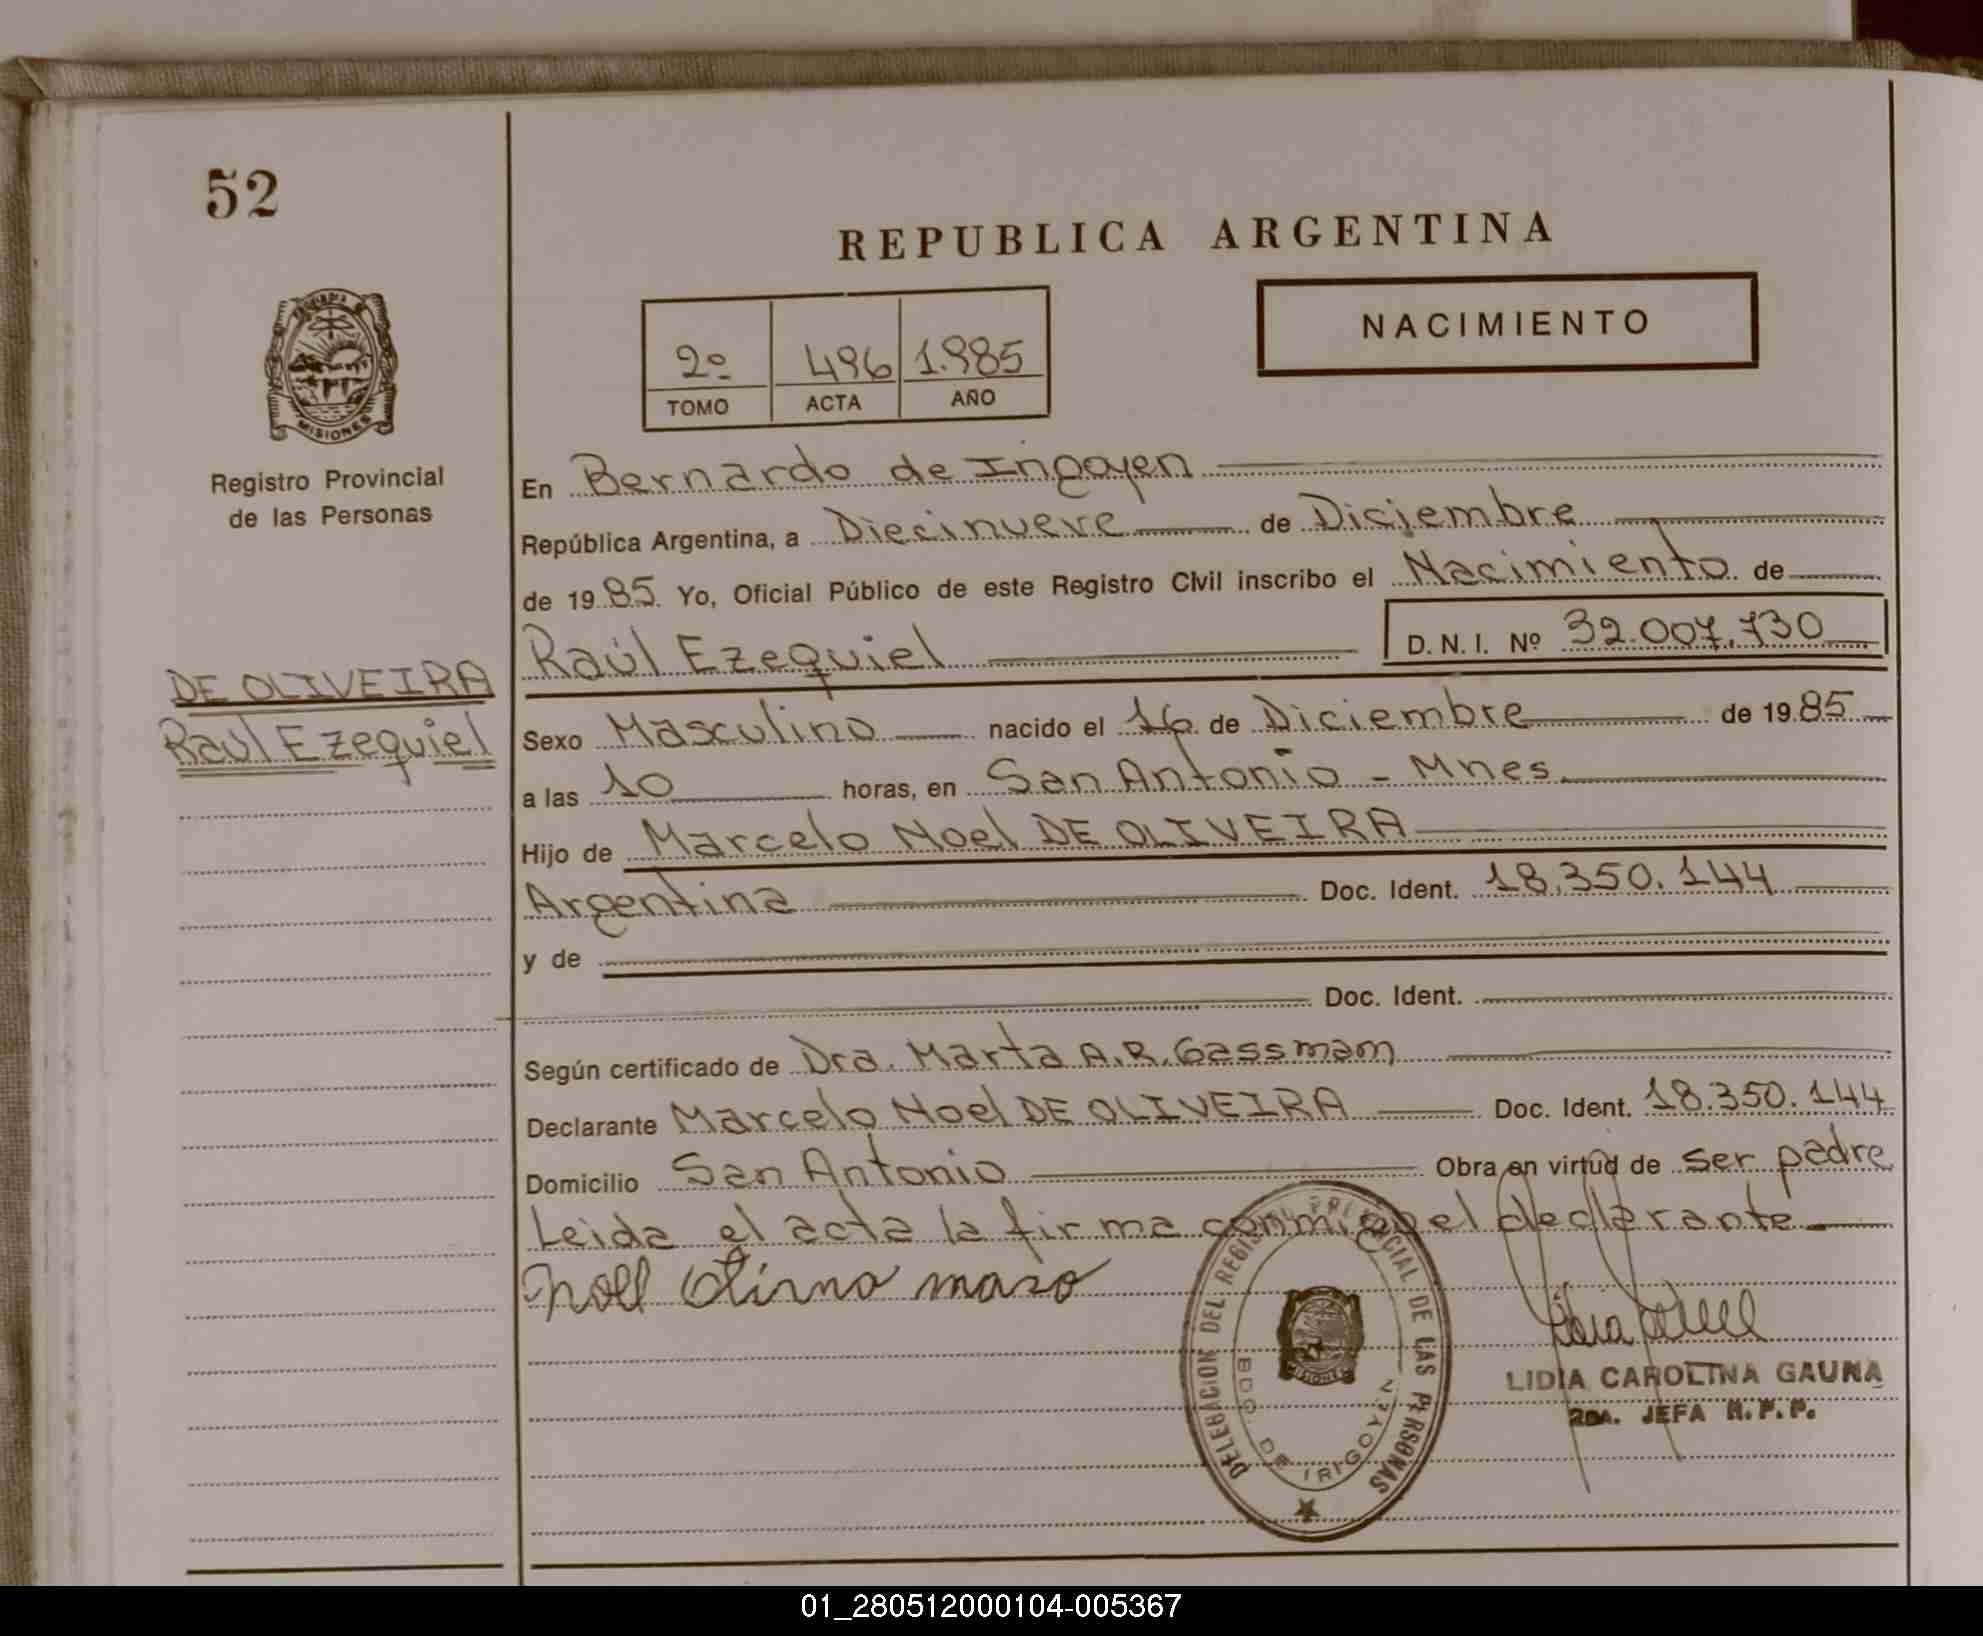 52
REPUBLICA ARGENTINA
NACIMIENTO
2º 496 1.985
TOMO ACTA AÑO
PROVINCIA DE
MISIONES
Registro Provincial
de las Personas
DE OLIVEIRA
Raúl Ezequiel
En Bernardo de Irigoyen
República Argentina, a Diecinueve de Diciembre
de 1985 Yo, Oficial Público de este Registro Civil inscribo el Nacimiento de
Raúl Ezequiel D. N. I. Nº 32.007.730
Sexo Masculino nacido el 16 de Diciembre de 1985
a las 10 horas, en San Antonio - Mnes
Hijo de Marcelo Noel DE OLIVEIRA
Argentina Doc. Ident. 18.350.144
y de
Doc. Ident.
Según certificado de Dra. Marta A.R. Gassmam
Declarante Marcelo Noel DE OLIVEIRA Doc. Ident. 18.350.144
Domicilio San Antonio Obra en virtud de ser padre
Leida el acta la firma conmigo el declarante
DELEGACION DEL REGISTRO PROVINCIAL DE LAS PERSONAS
BDO. DE IRIGOYEN
MISIONES
LIDIA CAROLINA GAUNA
2DA. JEFA R.P.P.
01_280512000104-005367